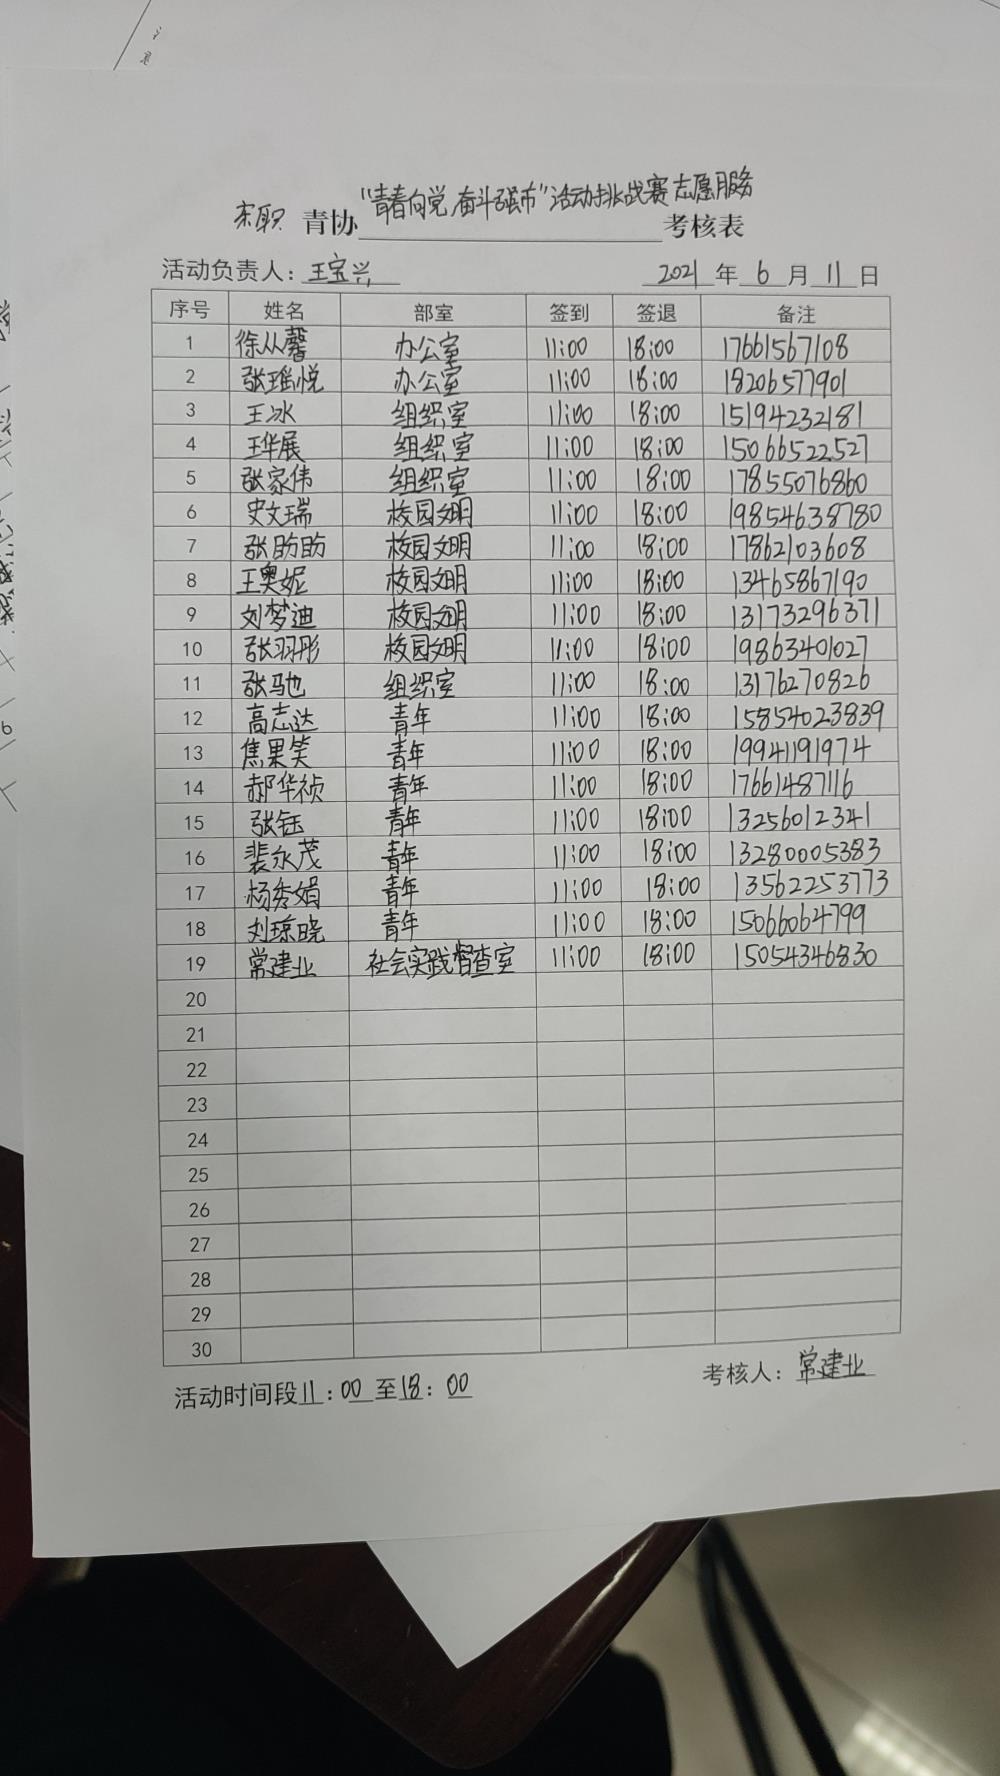 东职 青协 "青春向党 奋斗强市"活动挑战赛志愿服务 考核表
活动负责人：王宝兴 2021 年 6 月 11 日
序号 姓名 部室 签到 签退 备注
1 徐从馨 办公室 11:00 18:00 17661567108
2 张瑶悦 办公室 11:00 18:00 18206577901
3 王冰 组织室 11:00 18:00 15194232181
4 王华展 组织室 11:00 18:00 15066522527
5 张家伟 组织室 11:00 18:00 17855076860
6 史文瑞 校园文明 11:00 18:00 19854638780
7 张盼盼 校园文明 11:00 18:00 17862103608
8 王奥妮 校园文明 11:00 18:00 13465867190
9 刘梦迪 校园文明 11:00 18:00 13173296371
10 张羽彤 校园文明 11:00 18:00 19863401027
11 张驰 组织室 11:00 18:00 13176270826
12 高志达 青年 11:00 18:00 15854023839
13 焦果笑 青年 11:00 18:00 19941191974
14 郝华祯 青年 11:00 18:00 17661487116
15 张钰 青年 11:00 18:00 13256012341
16 裴永茂 青年 11:00 18:00 13280005383
17 杨秀娟 青年 11:00 18:00 13562253773
18 刘琼晓 青年 11:00 18:00 15066064799
19 常建业 社会实践督查室 11:00 18:00 15054346830
20
21
22
23
24
25
26
27
28
29
30
活动时间段 11：00 至 18：00 考核人：常建业